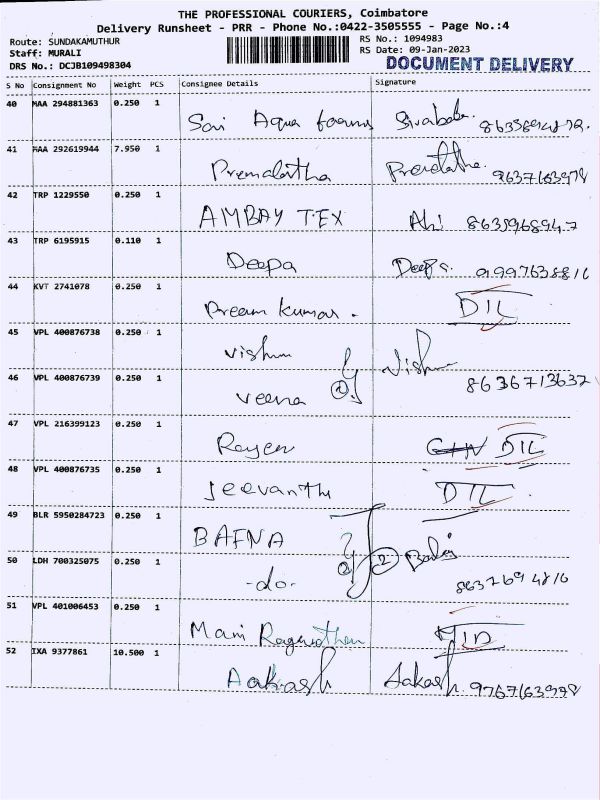 THE PROFESSIONAL COURIERS, Coimbatore
Delivery Runsheet - PRR - Phone No.:0422-3505555 - Page No.:4
Route: SUNDAKAMUTHUR RS No.: 1094983
Staff: MURALI RS Date: 09-Jan-2023
DRS No.: DCJB109498304 DOCUMENT DELIVERY
S No Consignment No Weight PCS Consignee Details Signature
40 MAA 294881363 0.250 1
Sai Aqua farms
41 MAA 292619944 7.950 1
Premalatha Premalatha 9637163978
42 TRP 1229550 0.250 1
AMBAY TEX 8635968947
43 TRP 6195915 0.110 1
Deepa Deepa 91997638816
44 KVT 2741078 0.250 1
Preem kumar. DIL
45 VPL 400876738 0.250 1
vishnu Vishnu
46 VPL 400876739 0.250 1
veena 2 8636713637
47 VPL 216399123 0.250 1
DIL
48 VPL 400876735 0.250 1
Jeevantha DIL
49 BLR 5950284723 0.250 1
BAFNA
50 LDH 700325075 0.250 1
-do- 2 2 8637694816
51 VPL 401006453 0.250 1
Mani
52 IXA 9377861 10.500 1
Aakash Aakash 9767163978